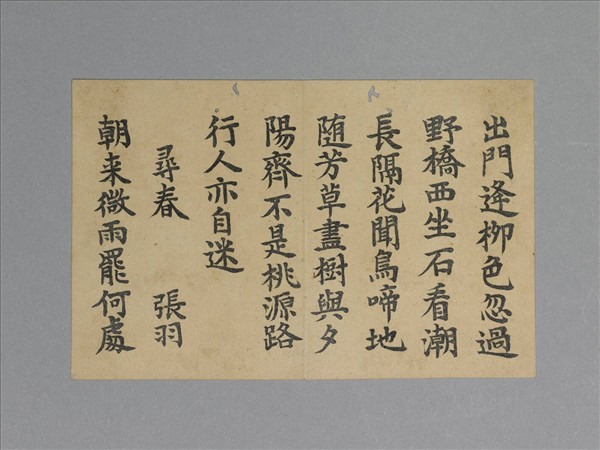 出門逢柳色忽過
野橋西坐石看潮
長隔花聞鳥啼地
随芳草盡樹與夕
陽齊不是桃源路
行人亦自迷
尋春 張羽
朝来微雨罷何處